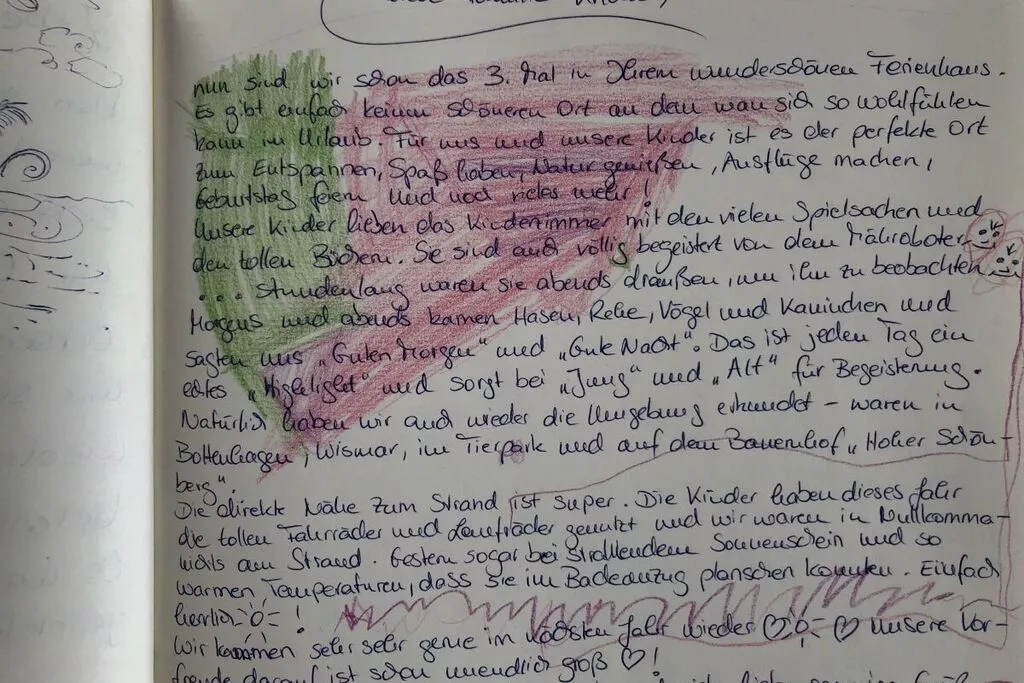 nun sind wir schon das 3. Mal in Ihrem wunderschönen Ferienhaus.
Es gibt einfach keinen schöneren Ort an dem man sich so wohlfühlen
kann im Urlaub. Für uns und unsere Kinder ist es der perfekte Ort
zum Entspannen, Spaß haben, Natur genießen, Ausflüge machen,
Geburtstag feiern und noch vieles mehr!
Unsere Kinder lieben das Kinderzimmer mit den vielen Spielsachen und
den tollen Büchern. Sie sind auch völlig begeistert von dem Mähroboter
... stundenlang waren sie abends draußen, um ihn zu beobachten
Morgens und abends kamen Hasen, Rehe, Vögel und Kaninchen und
sagten uns „Guten Morgen" und „Gute Nacht". Das ist jeden Tag ein
echtes „Highlight" und sorgt bei „Jung" und „Alt" für Begeisterung.
Natürlich haben wir auch wieder die Umgebung erkundet - waren in
Boltenhagen, Wismar, im Tierpark und auf dem Bauernhof „Hoher Schön-
berg".
Die direkte Nähe zum Strand ist super. Die Kinder haben dieses Jahr
die tollen Fahrräder und Laufräder genutzt und wir waren in Nullkomma-
nichts am Strand. Gestern sogar bei strahlendem Sonnenschein und so
warmen Temperaturen, dass sie im Badeanzug planschen konnten. Einfach
herrlich !
Wir kommen sehr sehr gerne im nächsten Jahr wieder ♡ ♡ unsere Vor-
freude darauf ist schon unendlich groß ♡!